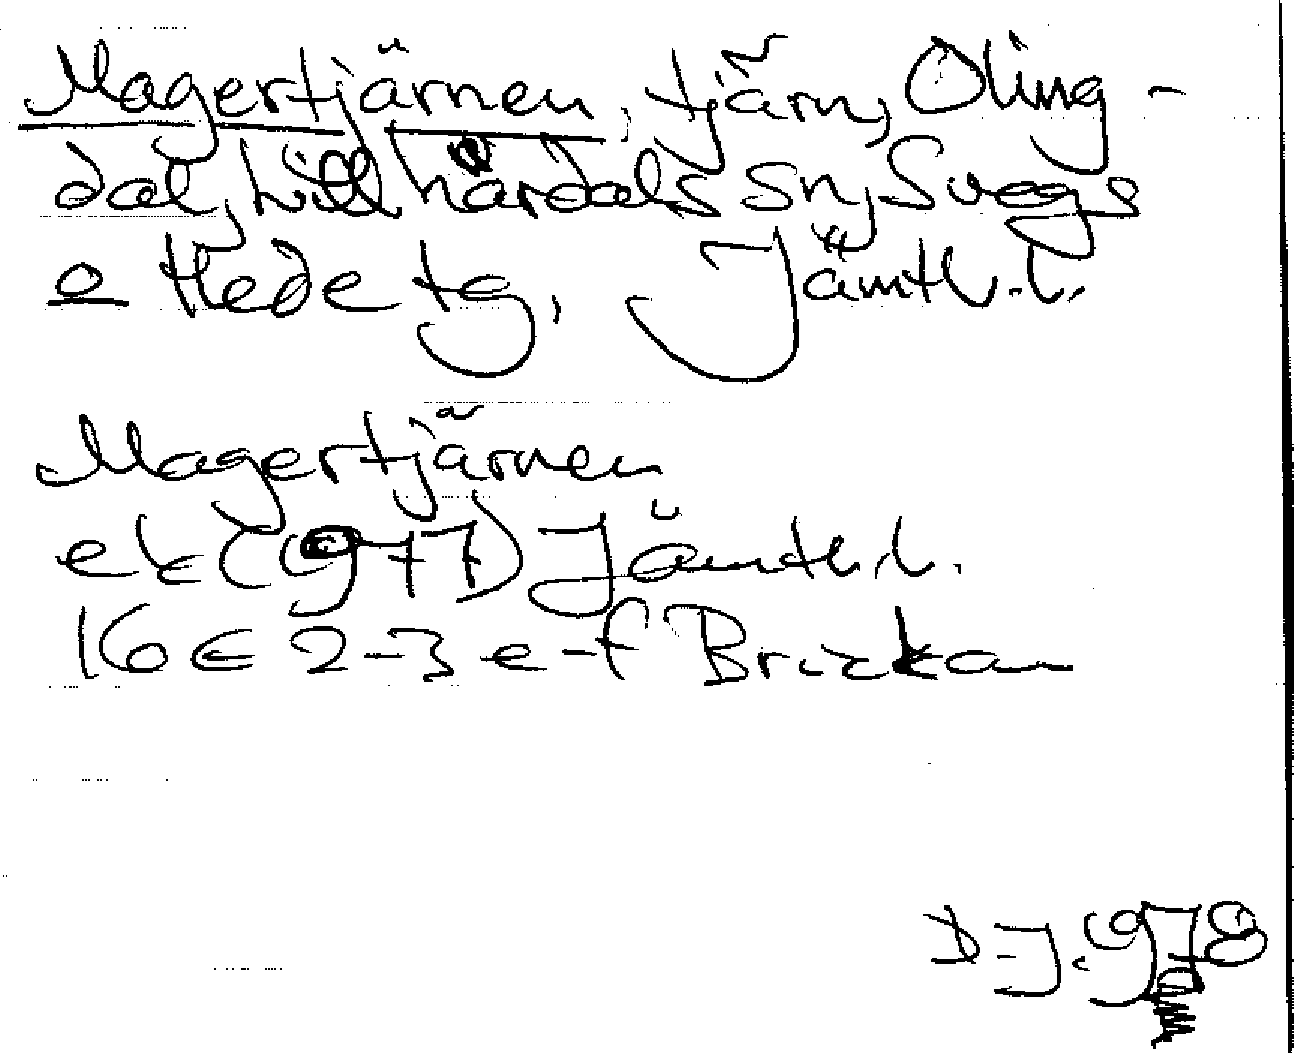 Magertjärnen, tjärn, Oling-
dal, Lillhärdals sn, Svegs
o Hede tg, Jämtl.l.
Magertjärnen
ek (977) Jämtl.l.
16 E 2-3 e-f Brickan
D-J. 978